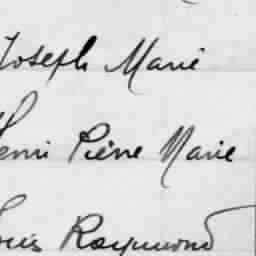 Joseph Marie
Henri Pierre Marie
Louis Raymond